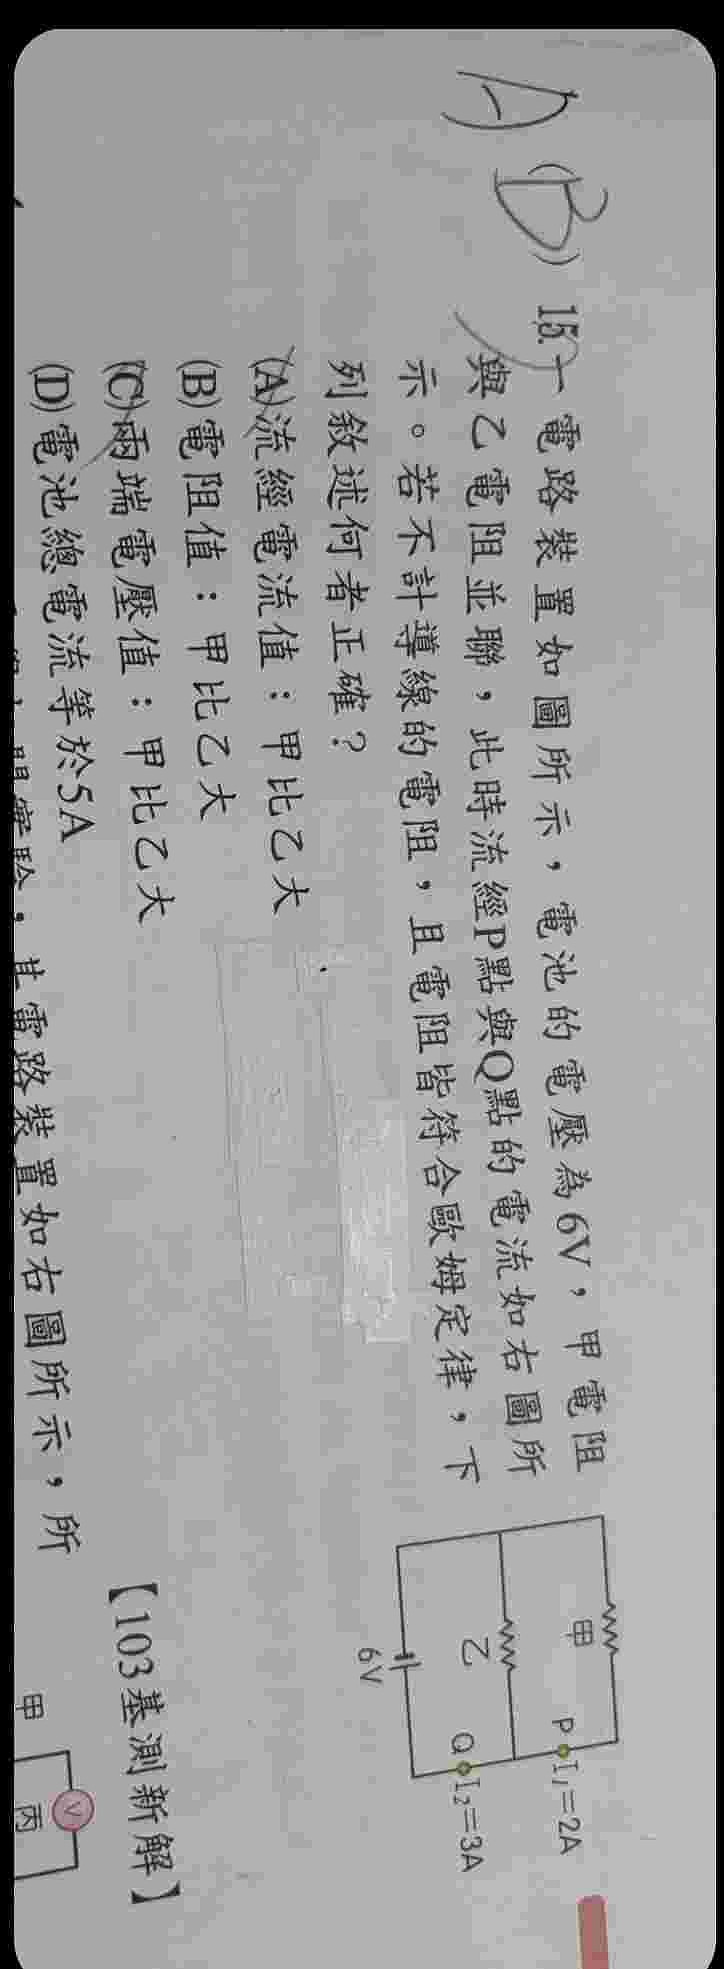 A
(B) 15.一電路裝置如圖所示，電池的電壓為6V，甲電阻
與乙電阻並聯，此時流經P點與Q點的電流如右圖所
示。若不計導線的電阻，且電阻皆符合歐姆定律，下
列敘述何者正確？
(A)流經電流值：甲比乙大
(B)電阻值：甲比乙大
(C)兩端電壓值：甲比乙大
(D)電池總電流等於5A
【103基測新解】
甲
P I₁=2A
乙
Q I₂=3A
6V
，其電路裝置如右圖所示，所
甲
V
丙